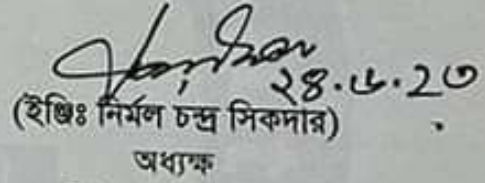 ২৪.৬.২৩
(ইঞ্জিঃ নির্মল চন্দ্র সিকদার)
অধ্যক্ষ